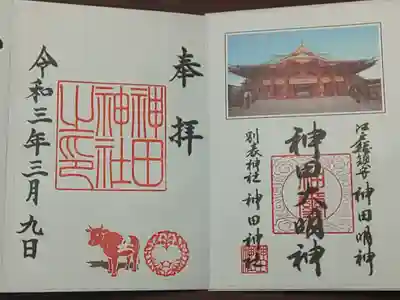 奉拝
神田
神社
之印
令和三年三月九日
江戸総鎮守 神田明神
神田大明神
別表神社 神田神社